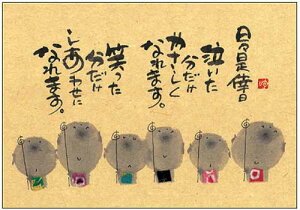 日々是倖日
泣いた
分だけ
やさしく
なれます。
笑った
分だけ
しあわせに
なれます。